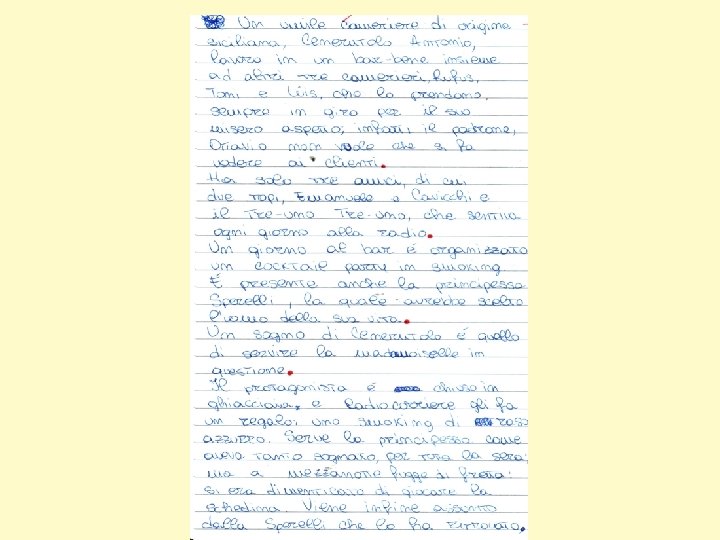 Un umile cameriere di origine
siciliana, Cenerutolo Antonio,
lavora in un bar-bene insieme
ad altri tre camerieri, Rufus,
Tomi e Luis, che lo prendono,
sempre in giro per il suo
misero aspetto; infatti il padrone,
Ottavio non vuole che si fa
vedere ai clienti.
Ha solo tre amici, di cui
due topi, Emanuele e Cavicchi e
il Tre-uno Tre-uno, che sentiva
ogni giorno alla radio.
Un giorno al bar è organizzato
un cocktail party in smoking.
È presente anche la principessa
Sporelli, la quale avrebbe scelto
l'uomo della sua vita.
Un sogno di Cenerutolo è quello
di servire la madmoiselle in
questione.
Il protagonista è chiuso in
ghiacciaia, e Radiocorriere gli fa
un regalo: uno smoking di
azzurro. Serve la principessa come
aveva tanto sognato, per tutta la sera;
ma a mezzanotte fugge di fretta:
si era dimenticato di giocare la
schedina. Viene infine assunto
dalla Sporelli che lo ha ritrovato.